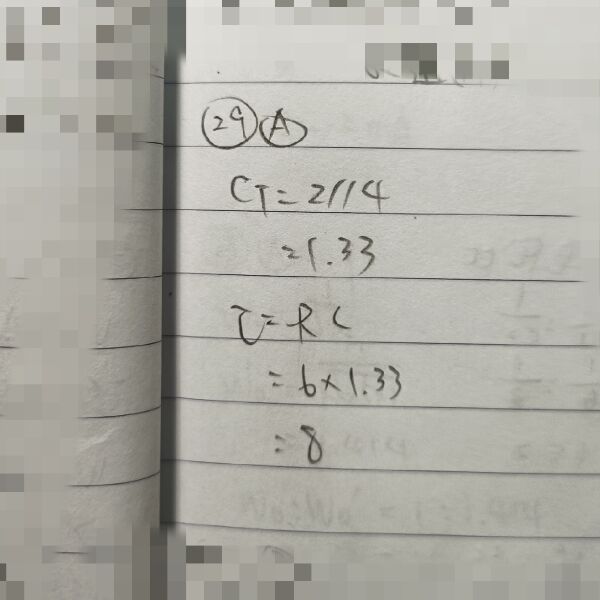 29 A
CT = 2//4
= 1.33
τ = RC
= 6×1.33
= 8